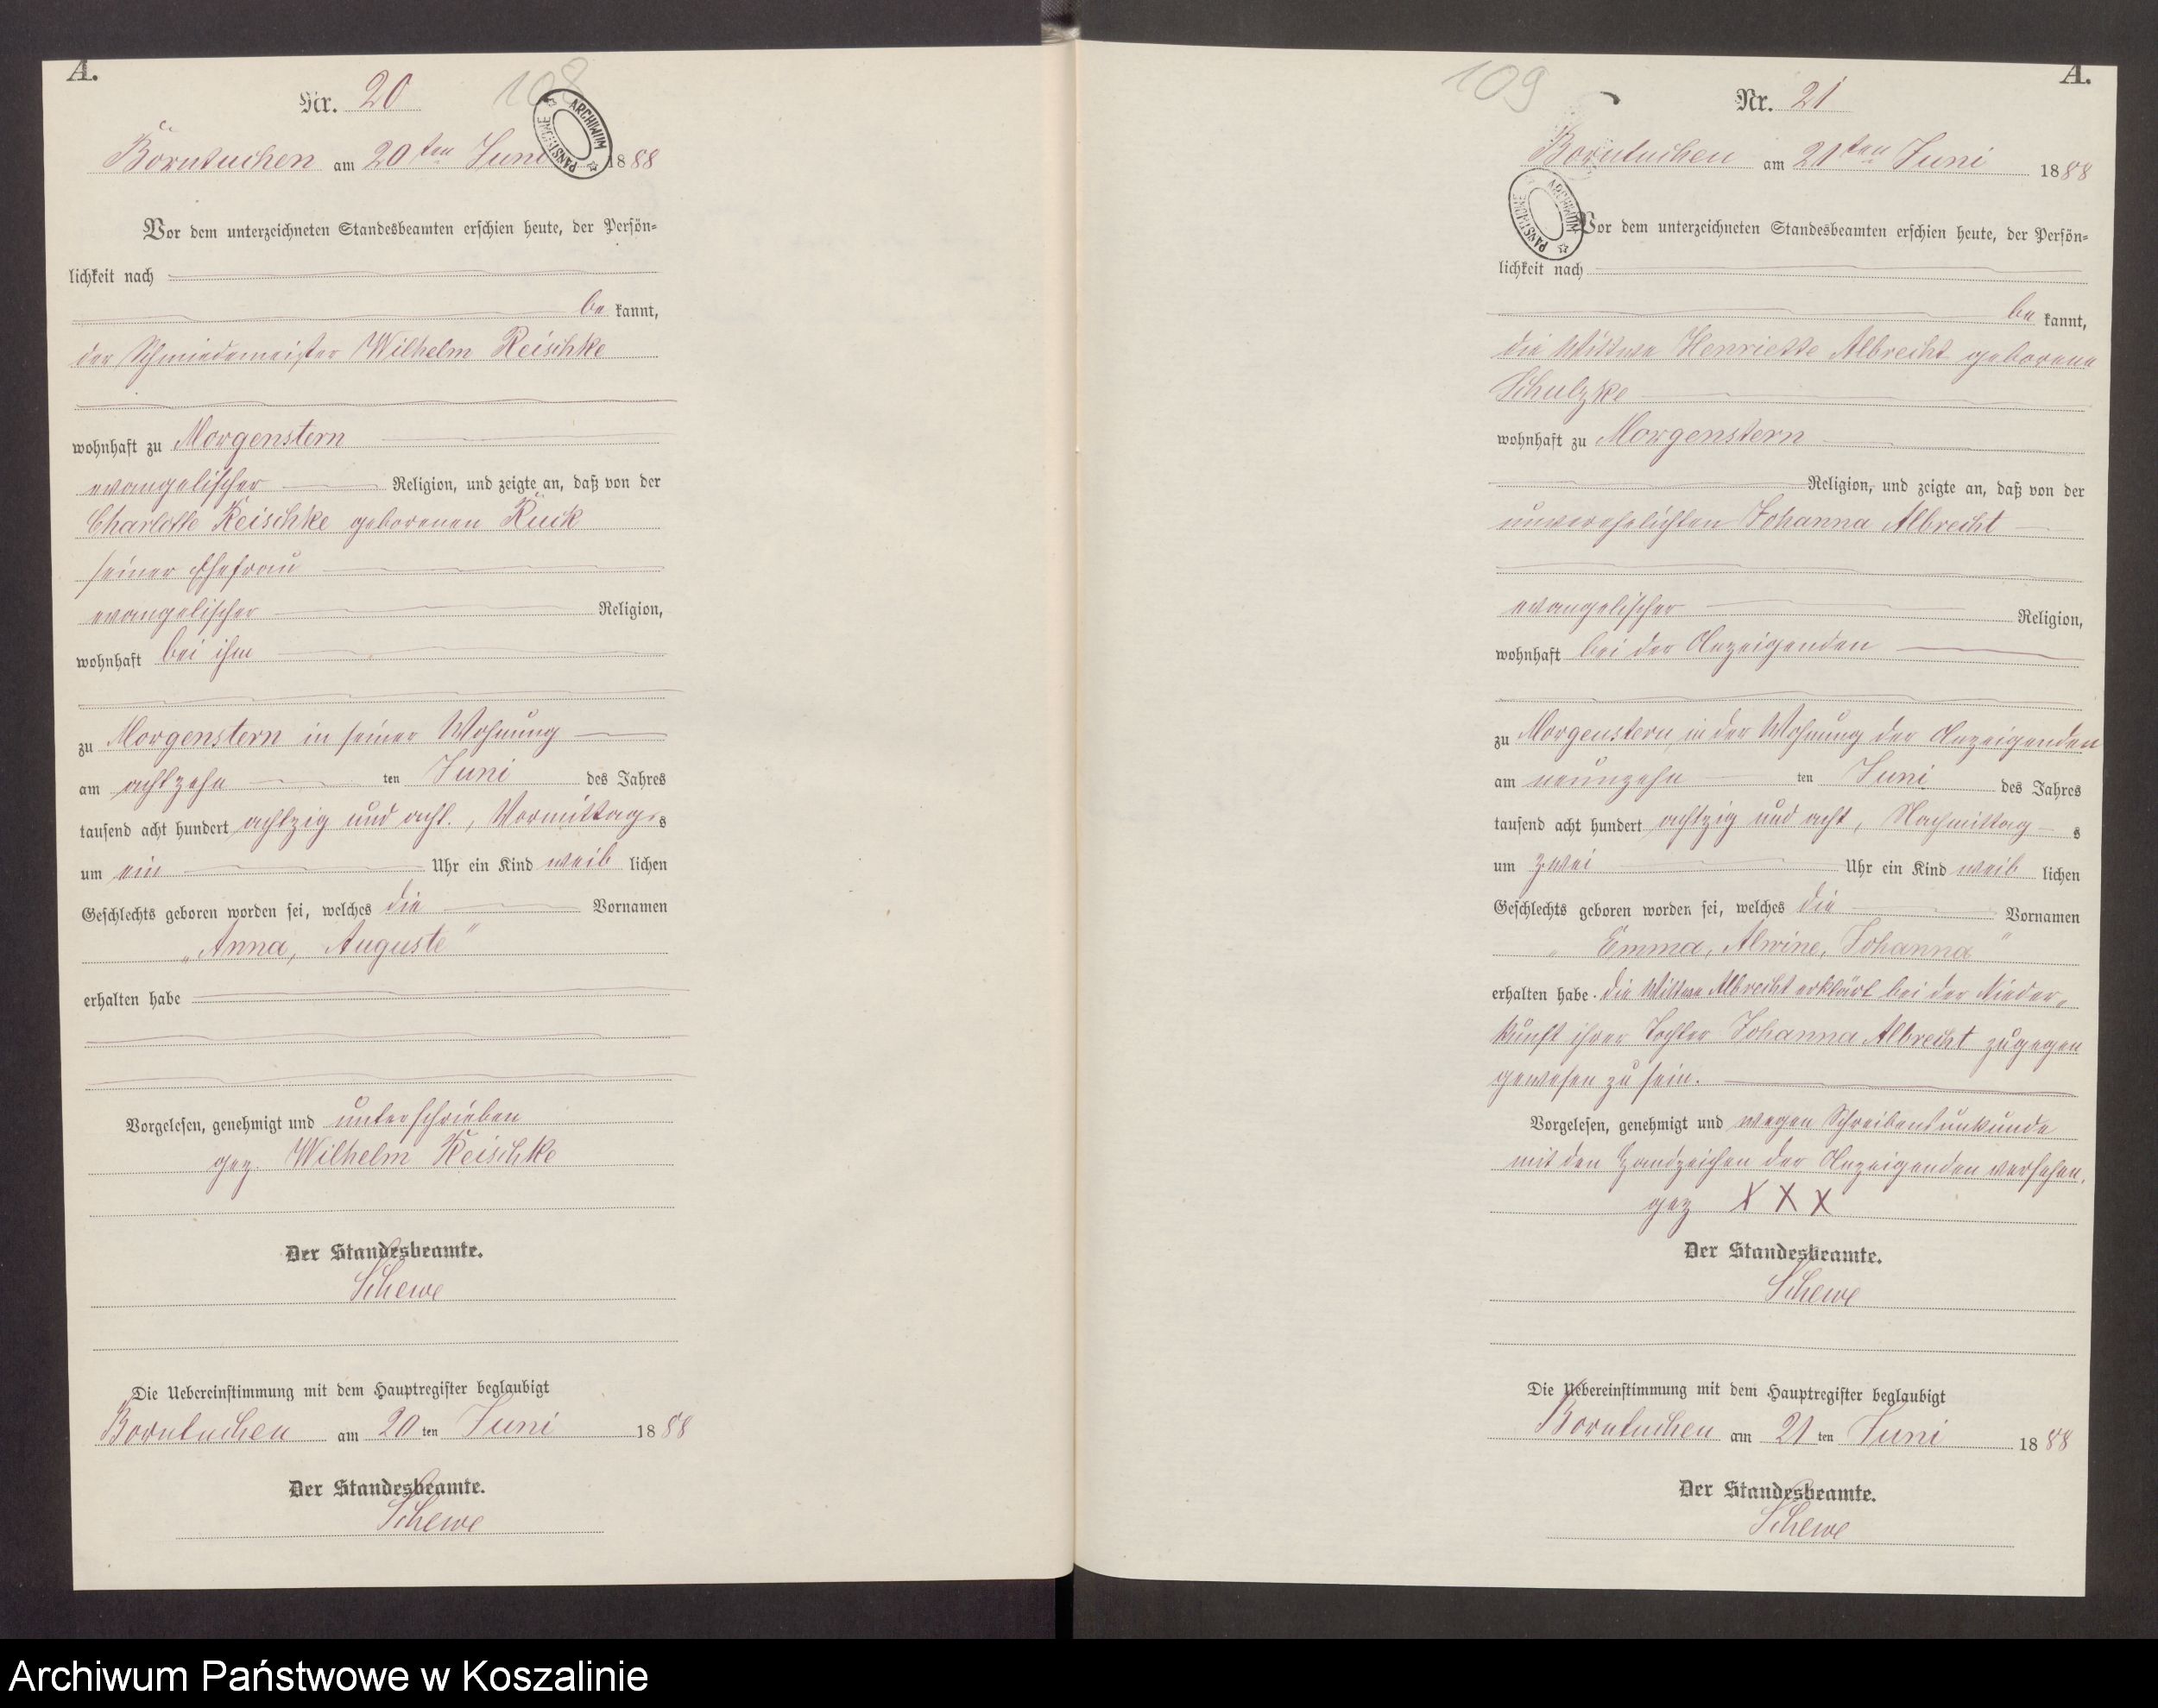 A.
Nr. 20
108
ARCHIWUM PAŃSTWOWE
Borntuchen am 20ten Juni 1888
Vor dem unterzeichneten Standesbeamten erschien heute, der Persön-
lichkeit nach
be kannt,
der Schmiedemeister Wilhelm Reischke
wohnhaft zu Morgenstern
evangelischer Religion, und zeigte an, daß von der
Charlotte Reischke geborenen Kuck
seiner Ehefrau
evangelischer Religion,
wohnhaft bei ihm
zu Morgenstern in seiner Wohnung
am achtzehn ten Juni des Jahres
tausend acht hundert achtzig und acht, Vormittags
um ein Uhr ein Kind weib lichen
Geschlechts geboren worden sei, welches die Vornamen
„Anna, Auguste“
erhalten habe
Vorgelesen, genehmigt und unterschrieben
gez. Wilhelm Reischke
Der Standesbeamte.
Schewe
Die Uebereinstimmung mit dem Hauptregister beglaubigt
Borntuchen am 20 ten Juni 1888
Der Standesbeamte.
Schewe
A.
Nr. 21
109
Borntuchen am 21ten Juni 1888
ARCHIWUM PAŃSTWOWE
Vor dem unterzeichneten Standesbeamten erschien heute, der Persön-
lichkeit nach
be kannt,
die Wittwe Henriette Albrecht geborene
Schulzke
wohnhaft zu Morgenstern
Religion, und zeigte an, daß von der
unverehelichten Johanna Albrecht
evangelischer Religion,
wohnhaft bei der Anzeigenden
zu Morgenstern in der Wohnung der Anzeigenden
am neunzehn ten Juni des Jahres
tausend acht hundert achtzig und acht, Nachmittags
um zwei Uhr ein Kind weib lichen
Geschlechts geboren worden sei, welches die Vornamen
„Emma, Alwine, Johanna“
erhalten habe. Die Wittwe Albrecht erklärt bei der Nieder-
kunft ihrer Tochter Johanna Albrecht zugegen
gewesen zu sein.
Vorgelesen, genehmigt und wegen Schreibensunkunde
mit den Handzeichen der Anzeigenden versehen.
gez X X X
Der Standesbeamte.
Schewe
Die Uebereinstimmung mit dem Hauptregister beglaubigt
Borntuchen am 21 ten Juni 1888
Der Standesbeamte.
Schewe
Archiwum Państwowe w Koszalinie